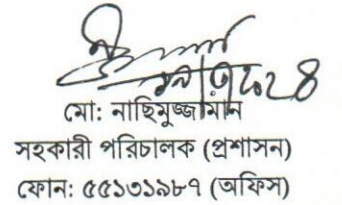 মো: নাছিমুজ্জামান
সহকারী পরিচালক (প্রশাসন)
ফোন: ৫৫১৩১৯৮৭ (অফিস)